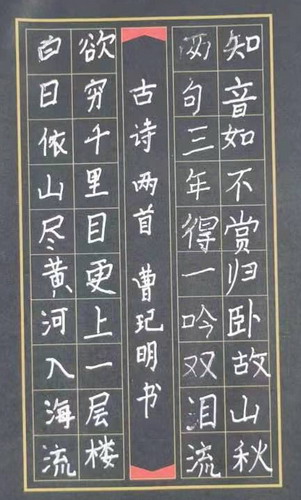 白日依山尽黄河入海流
欲穷千里目更上一层楼
古诗两首 曹玘明书
两句三年得一吟双泪流
知音如不赏归卧故山秋